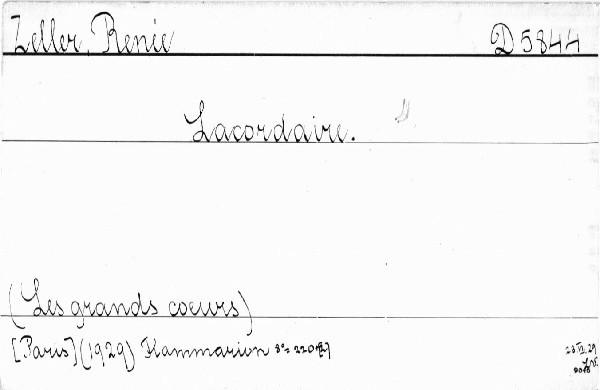 Zeller, Renée D5844
Lacordaire.
(Les grands coeurs)
[Paris] (1929) Flammarion 8°